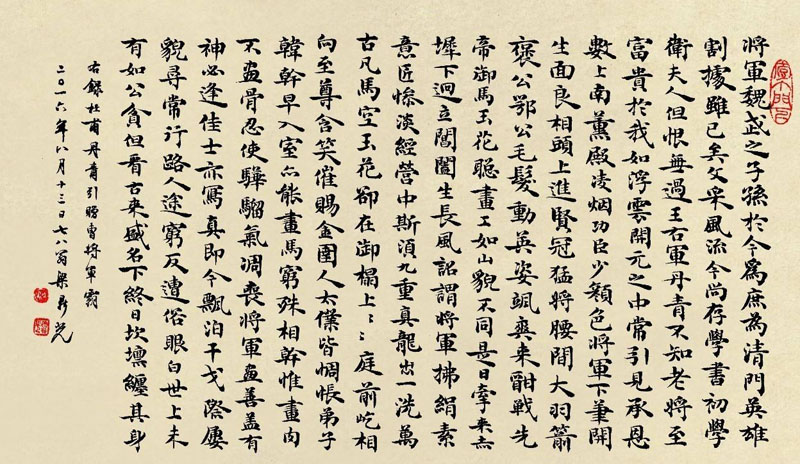 將軍魏武之子孫於今爲庶為清門英雄
割據雖已矣文采風流今尚存學書初學
衛夫人但恨無過王右軍丹青不知老將至
富貴於我如浮雲開元之中常引見承恩
數上南薰殿凌烟功臣少顏色將軍下筆開
生面良相頭上進賢冠猛將腰間大羽箭
褒公鄂公毛髮動英姿颯爽来酣戰先
帝御馬玉花驄畫工如山貌不同是日牽来赤
墀下迥立閶闔生長風詔謂將軍拂絹素
意匠慘淡經營中斯須九重真龍出一洗萬
古凡馬空玉花卻在御榻上ミ庭前屹相
向至尊含笑催賜金圉人太僕皆惆悵弟子
韓幹早入室亦能畫馬窮殊相幹惟畫肉
不畫骨忍使驊騮氣凋喪將軍畫善蓋有
神必逢佳士亦寫真即今飄泊干戈際屢
貌尋常行路人途窮反遭俗眼白世上未
有如公貧但看古来盛名下終日坎壈纏其身
右錄杜甫丹青引贈曹將軍霸
二〇一六年八月十三日七八翁梁